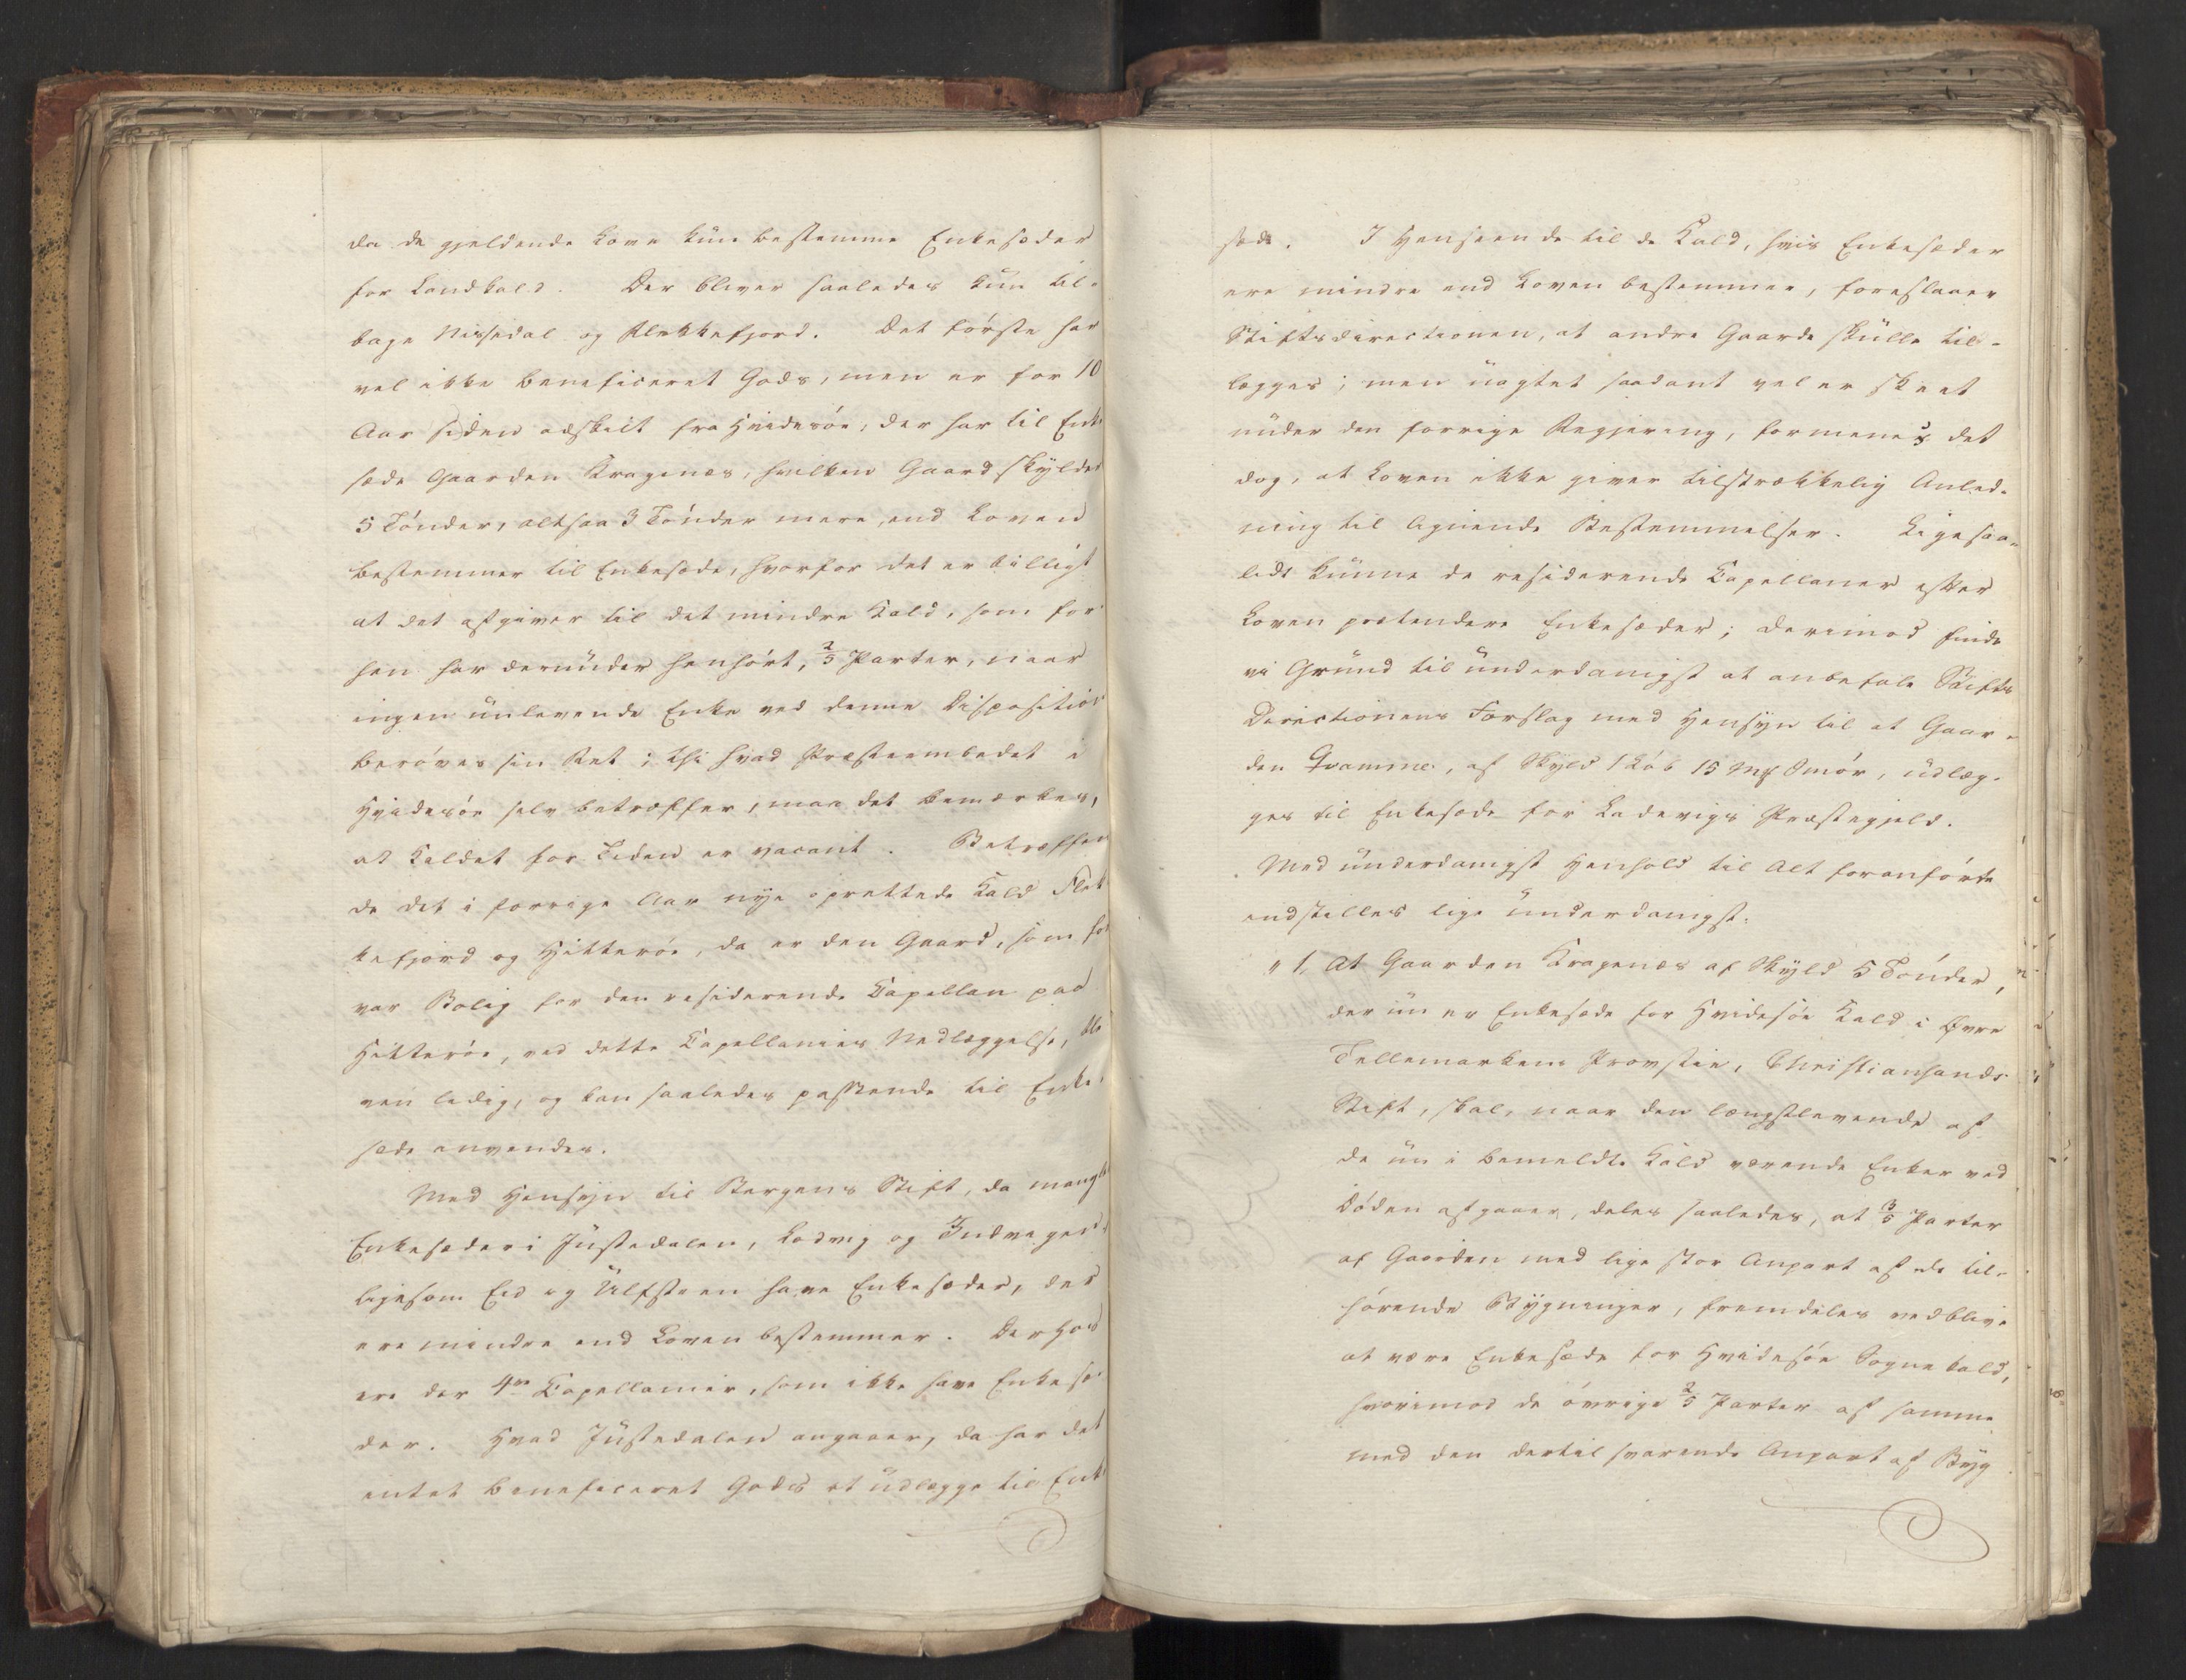 da de gjeldende Love kun bestemme Enkesæder
for Landkald. Der bliver saaledes kun til-
bage Nissedal og Flekkefjord. Det første har
vel ikke beneficeret Gods, men er for 10
Aar siden adskilt fra Hvidesøe, der har til Enke
sæde Gaarden Kragenæs, hvilken Gaard skylder
5 Tønder, altsaa 3 Tønder mere, end Loven
bestemmer til Enkesæde, hvorfor det er billigt
at det afgiver til det mindre Kald, som for
hen har derunder henhørt, 2/5 Parter, naar
ingen nulevende Enke ved denne Disposition
berøves sin Ret; thi hvad Præsteembedet i
Hvidesøe selv betræffer, maa det bemærkes,
at Kaldet for Tiden er vacant. Betræffen
de det i forrige Aar nye oprettede Kald Flek
kefjord og Hitterøe, da er den Gaard, som før
var Bolig for den residerende Capellan paa
Hitterøe, ved dette Capellanies Nedlæggelse, ble
ven ledig, og kan saaledes passende til Enke-
sæde anvendes.
Med Hensyn til Bergens Stift, da mangle
Enkesæder i Justedalen, Ladvig og Indvigen
ligesom Eid og Ulfsteen have Enkesæder, der
ere mindre end Loven bestemmer. Derhos
ere der 4re Capellanier, som ikke have Enkesæ
der. Hvad Justedalen angaaer, da har det
intet beneficeret Gods at udlægge til Enke
sæde. I Henseende til de Kald, hvis Enkesæder
ere mindre end Loven bestemmer, foreslaaer
Stiftsdirectionen, at andre Gaarde skulle til-
lægges; men uagtet saadant vel er skeet
under den forrige Regjering, formenes det
dog, at Loven ikke giver tilstrækkelig Anled-
ning til lignende Bestemmelser. Ligesaa-
lidt kunne de residerende Capellaner efter
Loven prætendere Enkesæder; derimod finde
vi Grund til underdanigst at anbefale Stifts
Directionens Forslag med Hensyn til at Gaar-
den Qvamme, af Skyld 1 Løb 15 Mk Smør, udlæg-
ges til Enkesæde for Ladevigs Præstegjeld.
Med underdanigst Henhold til Alt foranførte
indstilles lige underdanigst:
" 1, At Gaarden Kragenæs af Skyld 5 Tønder,
der nu er Enkesæde for Hvidesøe Kald i Øvre
Tellemarkens Provstie, Christiansands
Stift, skal, naar den længstlevende af
de nu i bemeldte Kald værende Enker ved
Døden afgaaer, deles saaledes, at 3/5 Parter
af Gaarden med lige stor Anpart af de til-
hørende Bygninger, fremdeles vedblive
at være Enkesæde for Hvidesøe Sognekald,
hvorimod de øvrige 2/5 Parter af samme
med den dertil svarende Anpart af Byg